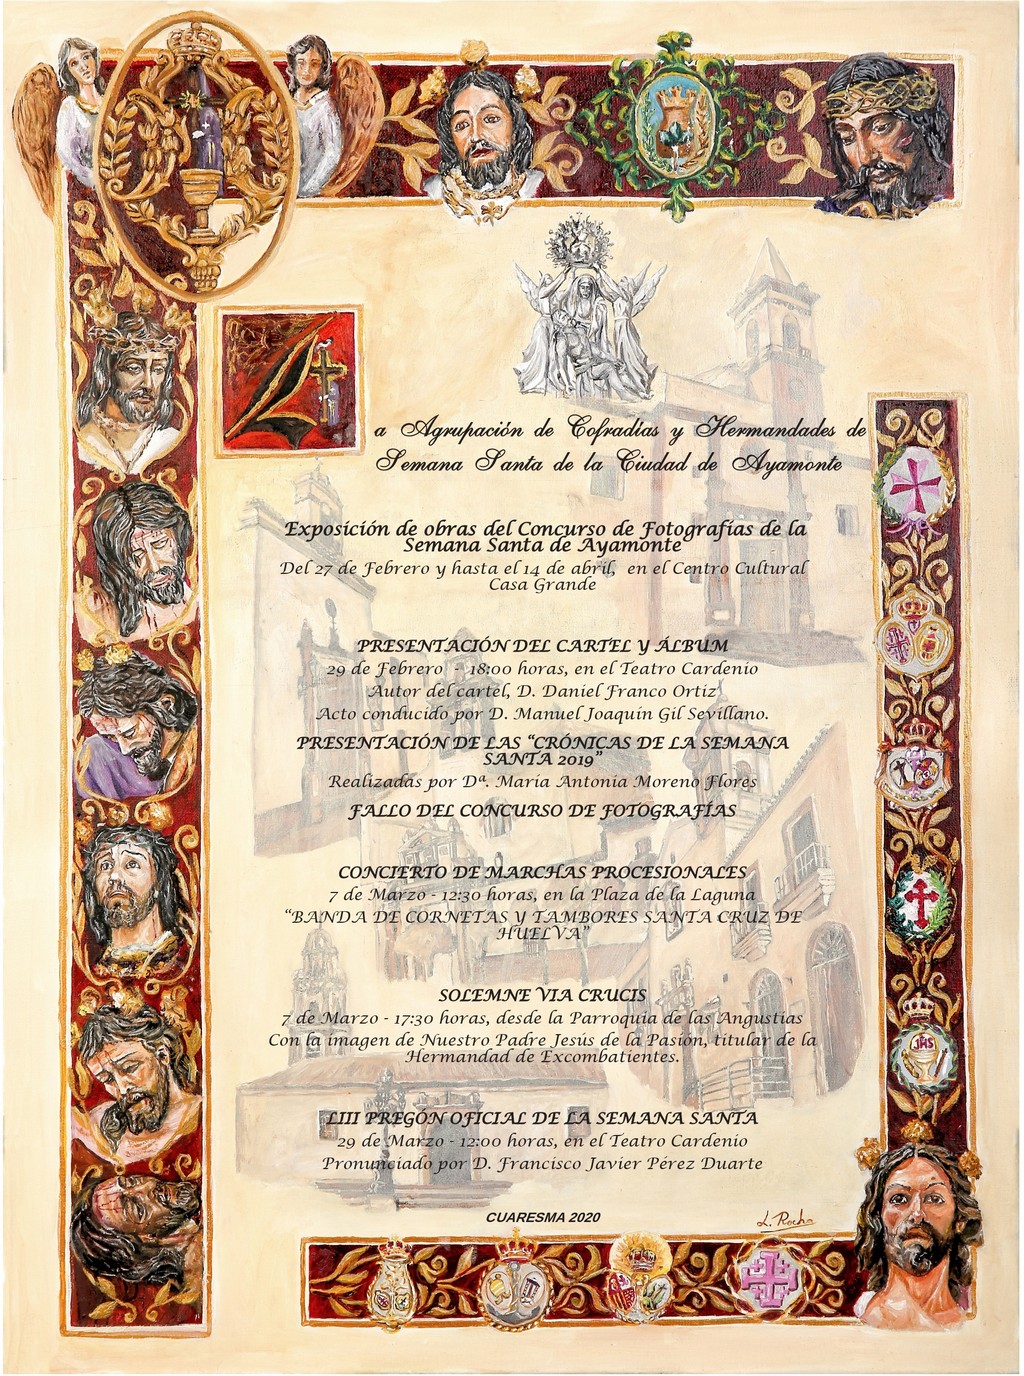 La Agrupación de Cofradías y Hermandades de
Semana Santa de la Ciudad de Ayamonte
Exposición de obras del Concurso de Fotografías de la
Semana Santa de Ayamonte
Del 27 de Febrero y hasta el 14 de abril, en el Centro Cultural
Casa Grande
PRESENTACIÓN DEL CARTEL Y ÁLBUM
29 de Febrero - 18:00 horas, en el Teatro Cardenio
Autor del cartel, D. Daniel Franco Ortiz
Acto conducido por D. Manuel Joaquín Gil Sevillano.
PRESENTACIÓN DE LAS “CRÓNICAS DE LA SEMANA
SANTA 2019”
Realizadas por Dª. María Antonia Moreno Flores
FALLO DEL CONCURSO DE FOTOGRAFÍAS
CONCIERTO DE MARCHAS PROCESIONALES
7 de Marzo - 12:30 horas, en la Plaza de la Laguna
“BANDA DE CORNETAS Y TAMBORES SANTA CRUZ DE
HUELVA”
SOLEMNE VIA CRUCIS
7 de Marzo - 17:30 horas, desde la Parroquia de las Angustias
Con la imagen de Nuestro Padre Jesús de la Pasión, titular de la
Hermandad de Excombatientes.
LIII PREGÓN OFICIAL DE LA SEMANA SANTA
29 de Marzo - 12:00 horas, en el Teatro Cardenio
Pronunciado por D. Francisco Javier Pérez Duarte
CUARESMA 2020
L. Rocha
JHS